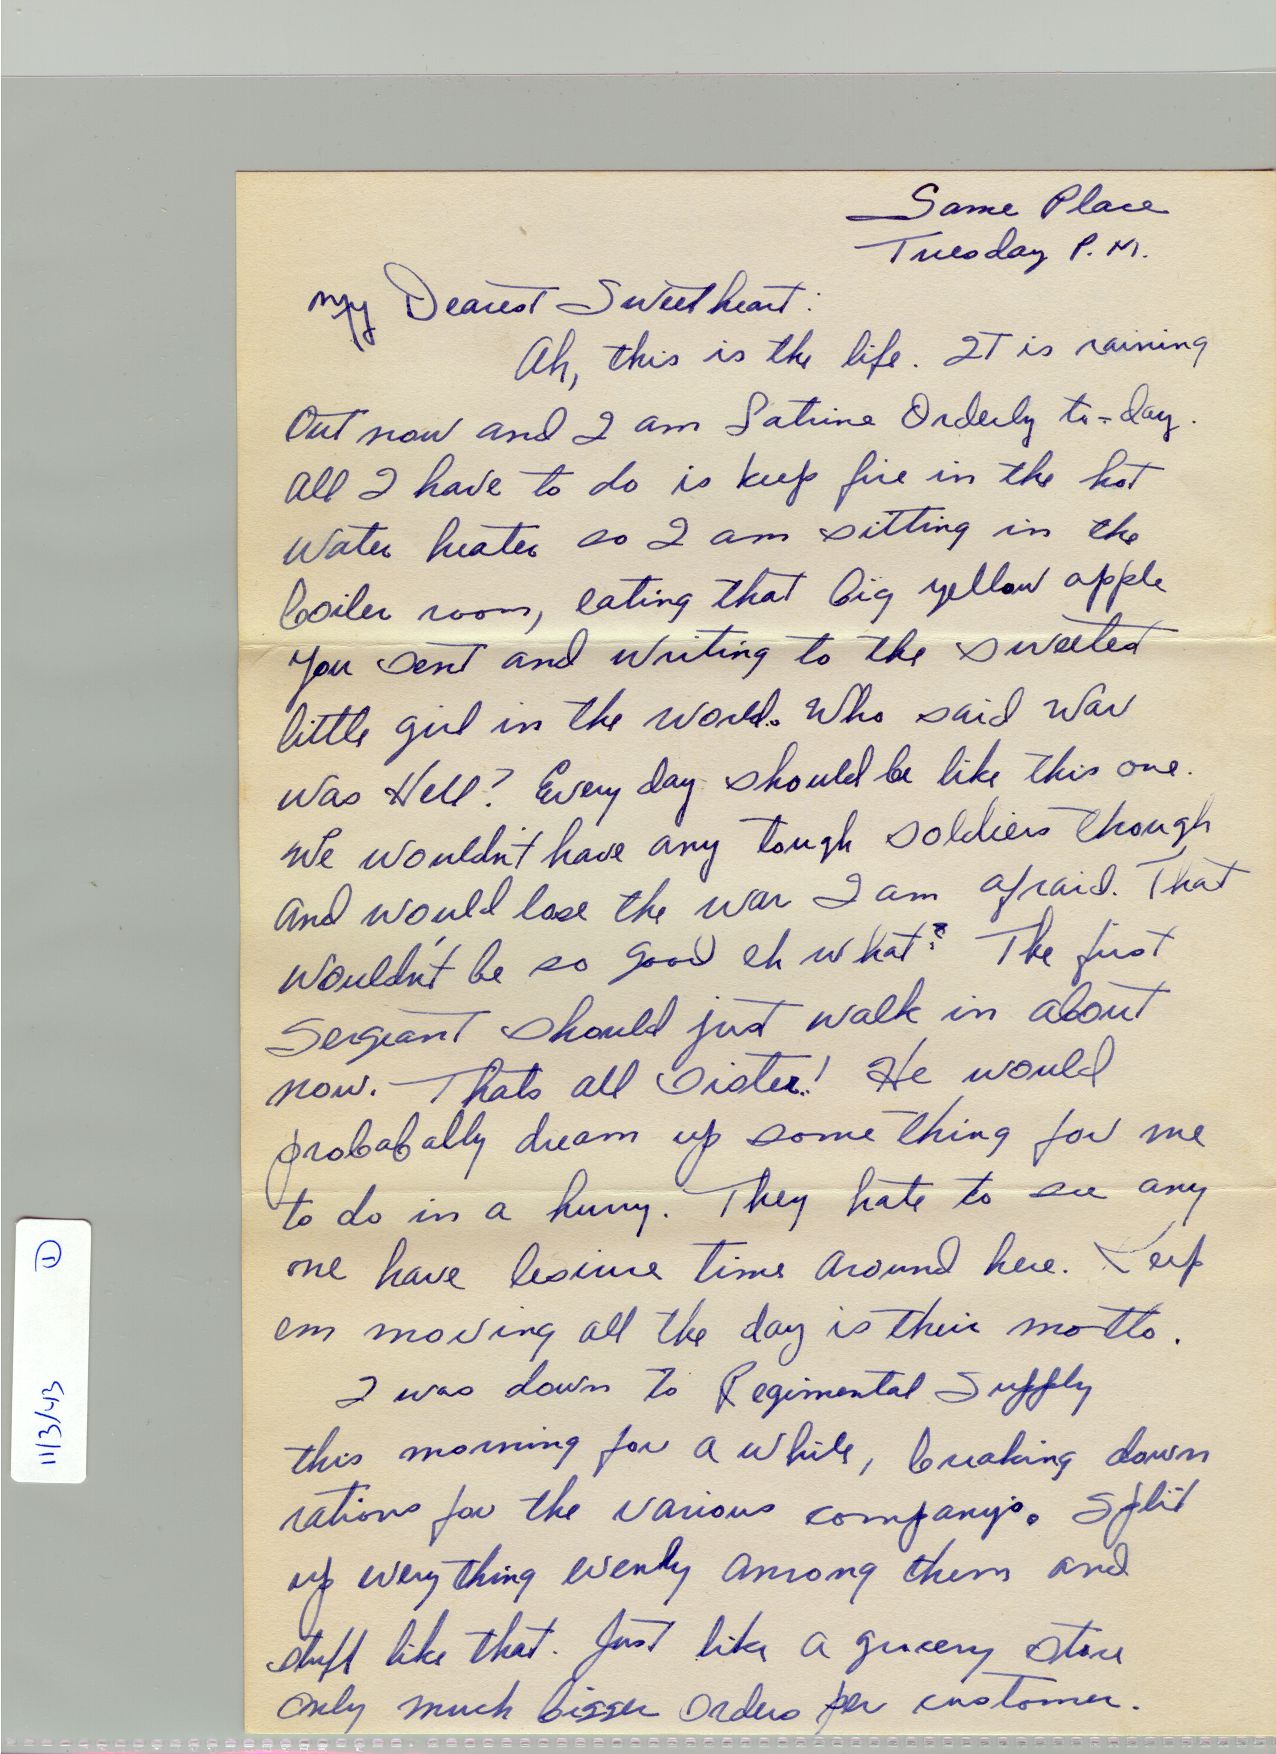 Same Place
Tuesday P.M.
My Dearest Sweetheart:
Ah, this is the life. It is raining
out now and I am Latrine Orderly to-day.
All I have to do is keep fire in the hot
water heater so I am sitting in the
boiler room, eating that big yellow apple
you sent and writing to the sweetest
little girl in the world. Who said war
was Hell? Every day should be like this one.
We wouldn't have any tough soldiers though
and would lose the war I am afraid. That
wouldn't be so good eh what? The first
Sergeant should just walk in about
now. Thats all Sister! He would
probabally dream up some thing for me
to do in a hurry. They hate to see any
one have lesiure time around here. Keep
em moving all the day is their motto.
I was down to Regimental Supply
this morning for a while, breaking down
rations for the various companys. Split
up everything evenly among them and
stuff like that. Just like a grocery store
only much bigger orders per customer.
11/3/43 1